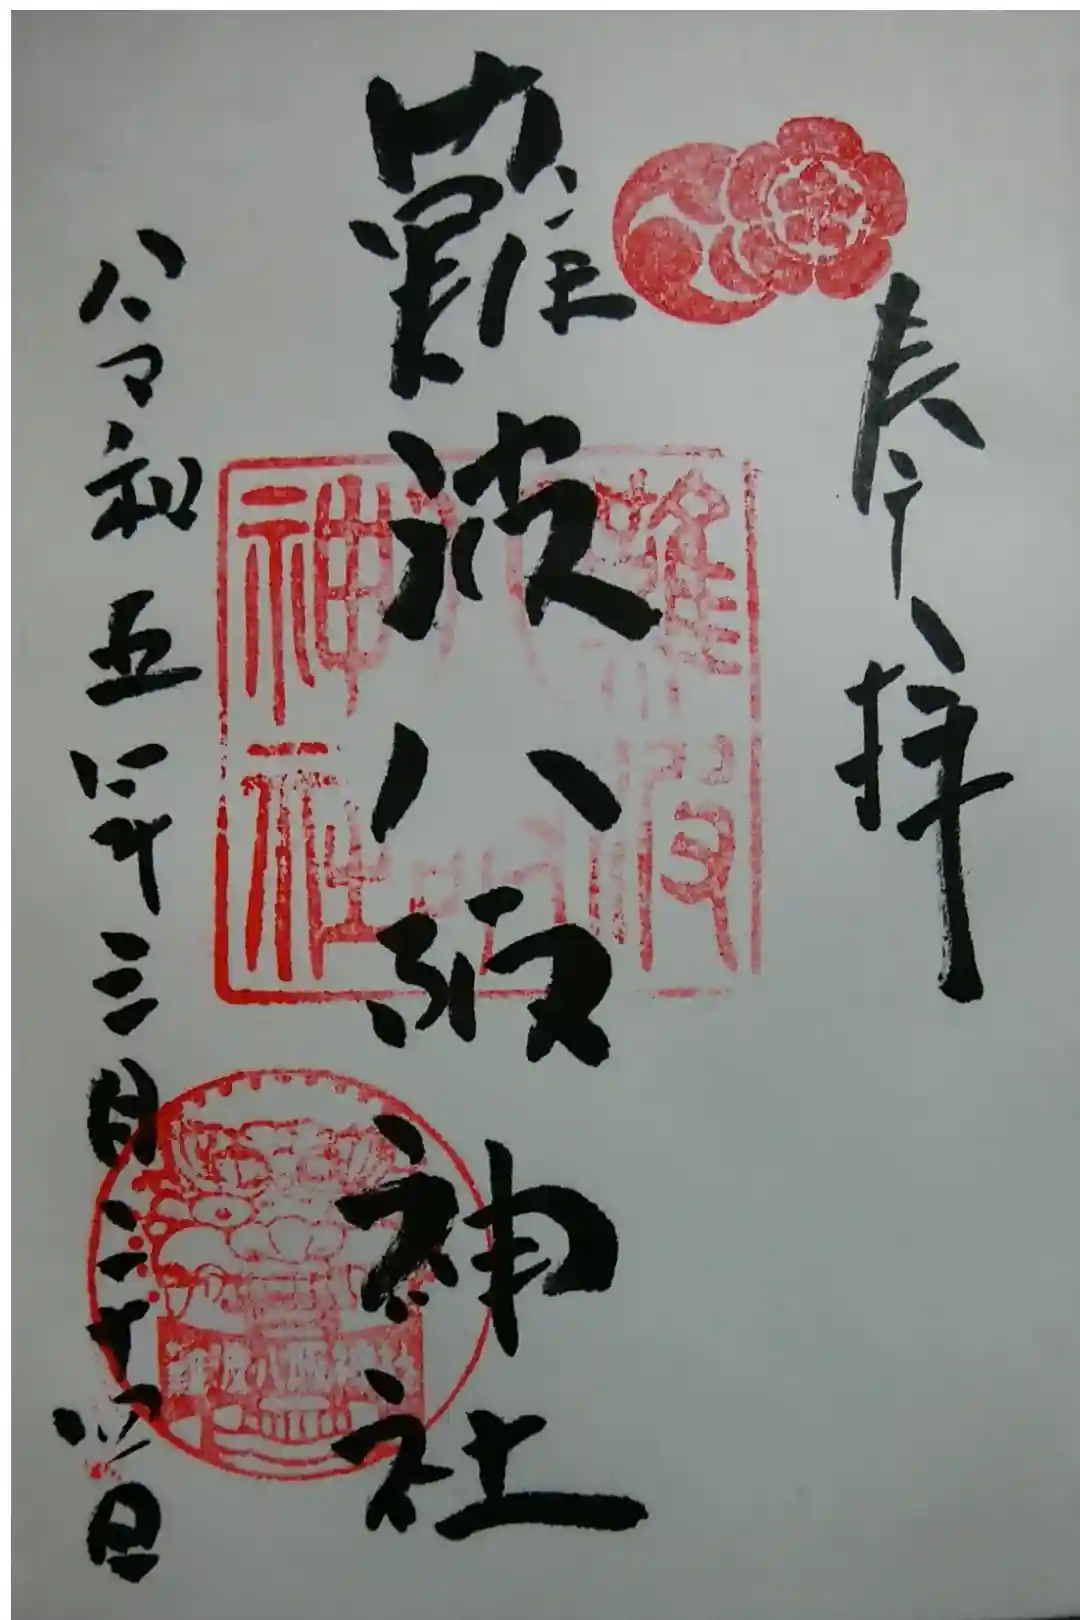 奉拝
難波八阪神社
難波
八阪
神社
難波八阪神社
令和五年三月二十日